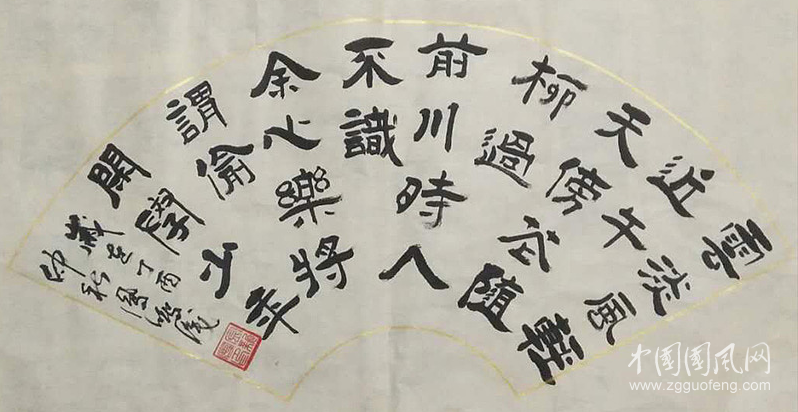 雲淡風輕
近午
天傍花隨
柳過
前川時人
不識
余心樂將
謂偷
閒學少年
歲在丁酉
仲秋
中国國风网
www.zgguofeng.com